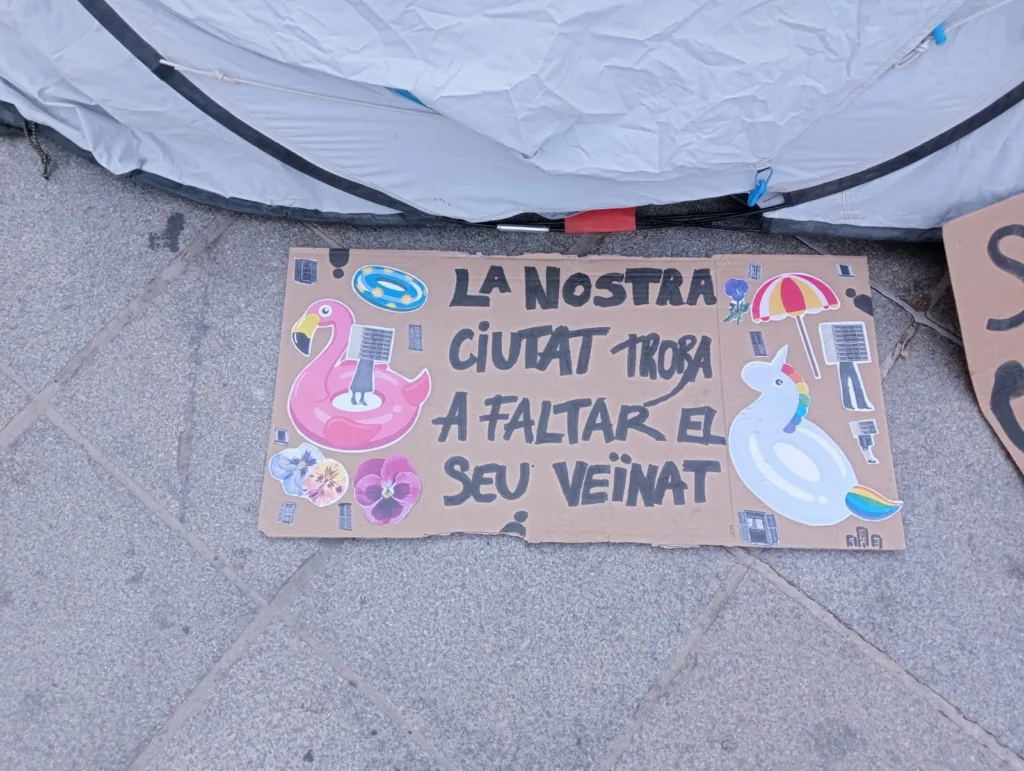 LA NOSTRA
CIUTAT TROBA
A FALTAR EL
SEU VEÏNAT